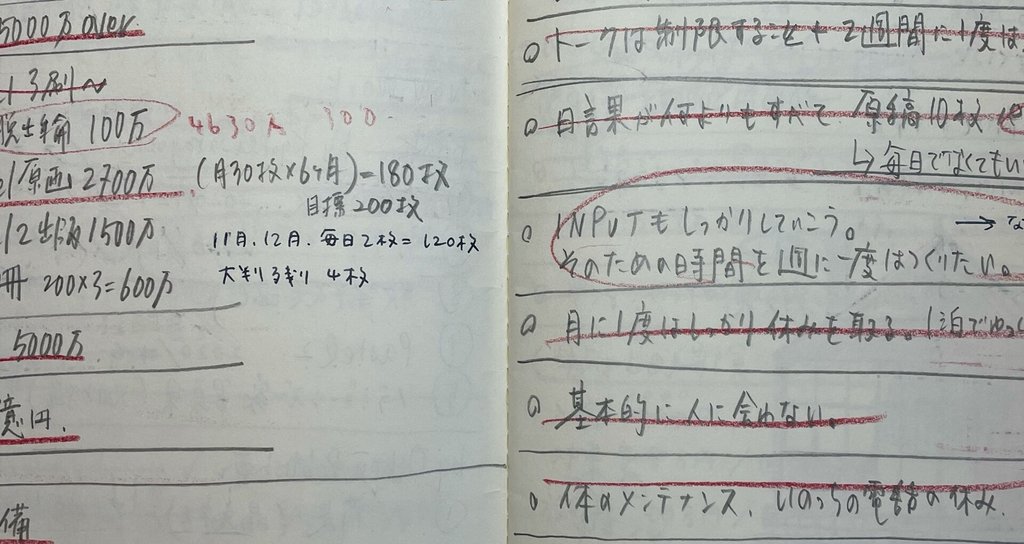 5000万 over
3刷〜
脱出輪 100万 4630人 300
原画 2700万 (月30枚×6ヶ月)=180枚
目標 200枚
12出版 1500万 11月、12月、毎日2枚=120枚
冊 200×3=600万 大判残り 4枚
5000万
億円.
備
○ トークは制限すること+2週間に1度は
○ 自言果が何よりもすべて. 原稿10枚
↳毎日でなくてもい
○ INPUTもしっかりしていこう。 →な
そのための時間を週に一度はつくりたい。
○ 月に1度はしっかり休みを取る。1泊でゆっく
○ 基本的に人に会わない。
○ 体のメンテナンス、いのっちの電話の休み.